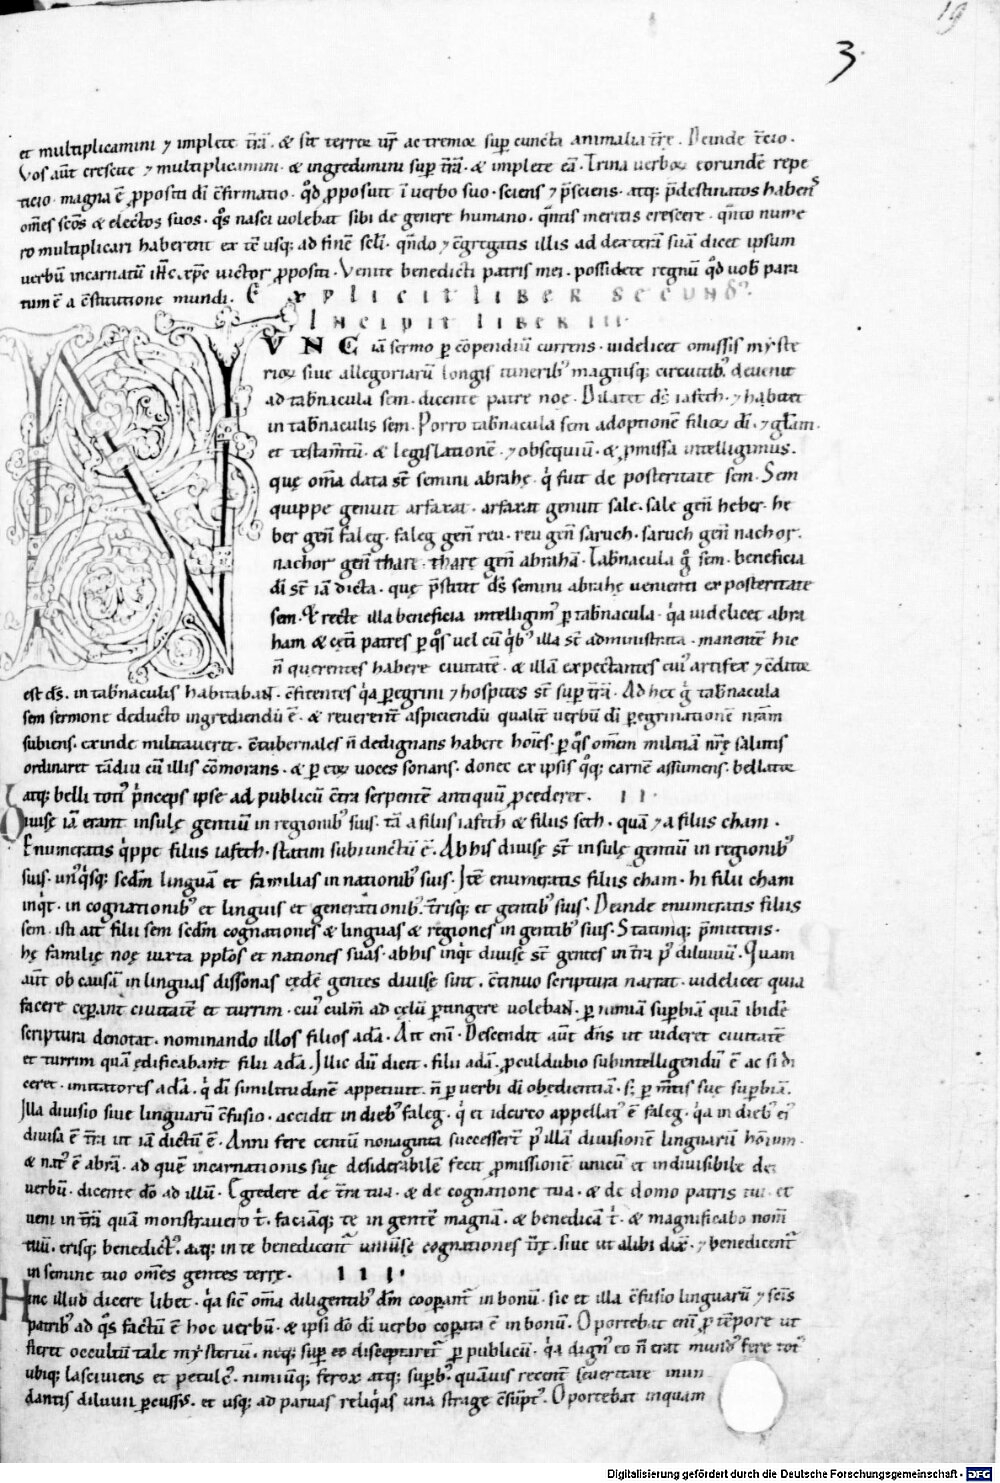 19
3
et multiplicamini ⁊ implete t̄rā. & sit terror ur̄ ac tremor sup̄ cuncta animalia t̄re. Deinde t̄cio.
Vos aūt crescite ⁊ multiplicamini. & ingredimini sup̄ t̄rā. & implete eā. Trina verboꝝ eorundē repe
ticio. magna ē ꝓpositi dī c̄firmatio. qd̄ ꝓposuit ī verbo suo. sciens ⁊ p̄sciens. atq; p̄destinatos habens
om̄s sc̄os & electos suos. q̊s nasci uolebat sibi de genere humano. qn̄tis meritis crescere. qn̄to nume
ro multiplicari haberent ex tē usq; ad finē sc̄li. qn̄do ⁊ c̄gregatis illis ad dexterā suā dicet ipsum
verbū incarnatū ih̄c xp̄c victor ꝓpositi. Venite benedicti patris mei. possidete regnū qd̄ uob̄ para
tum ē a c̄stitutione mundi. Explicit liber secundꝰ.
Incipit liber III.
NVNC iā sermo ꝑ cōpendiū currens. uidelicet omissis myste
rioꝝ siue allegoriarū longis itineribꝰ magnisq; circuitibꝰ. deuenit
ad tab̄nacula sem. dicente patre noe. Dilatet ds̄ iafeth. ⁊ habitet
in tab̄naculis sem. Porro tab̄nacula sem adoptionē filioꝝ dī. ⁊ gl̄am.
et testam̄tū. & legislationē. ⁊ obsequiū. & ꝓmissa intelligimus.
quę om̄a data st̄ semini abrahę. q̇ fuit de posteritate sem. Sem
quippe genuit arfaxat. arfaxat genuit sale. sale gen̄ heber. he
ber gen̄ faleg. faleg gen̄ reu. reu gen̄ saruch. saruch gen̄ nachor.
nachor gen̄ thare. thare gen̄ abrahā. Tab̄nacula g̊ sem. beneficia
dī st̄ iā dicta. quę p̄stitit ds̄ semini abrahę uenienti ex posteritate
sem. Et recte illa beneficia intelligimꝰ ꝑ tab̄nacula. q̇a uidelicet abra
ham & cęti patres ꝑ q̊s uel cū q̇bꝰ illa st̄ administrata. manentē hic
n̄ querentes habere ciuitatē. & illā expectantes cuiꝰ artifex ⁊ c̄ditor
est ds̄. in tab̄naculis habitabant. c̄fitentes q̇a ꝑegrini ⁊ hospites st̄ sup̄ t̄rā. Ad hec g̊ tab̄nacula
sem sermone deducto ingrediendū ē. & reuerent̄ aspiciendū qualit̄ verbū dī ꝑegrinationē nr̄am
subiens. exinde militauerit. c̄tubernales n̄ dedignans habere hoīes. ꝑ q̊s omēm militiā nr̄ę salutis
ordinaret tādiu cū illis cōmorans. & ꝑ eoꝝ uoces sonans. donec ex ipsis q̊q; carnē assumens. bellator
atq; belli totiꝰ p̊nceps ipse ad publicū c̄tra serpentē antiquū ꝓcederet. II.
Diuisę iā erant insulę gentium in regionibꝰ suis. tā a filiis iafeth & filiis seth. quā ⁊ a filiis cham.
Enumeratis q̇ppe filiis iafeth. statim subiunctū ē. Ab his diuisę st̄ insulę gentiū in regionibꝰ
suis. unꝰq̇sq; scd̄m linguā et familias in nationibꝰ suis. Itē enumeratis filiis cham. hi filii cham
inq̇t. in cognationibꝰ et linguis et generationibꝰ. t̄risq; et gentibꝰ suis. Deinde enumeratis filiis
sem. isti ait filii sem scd̄m cognationes & linguas & regiones in gentibꝰ suis. Statimq; p̄mittens.
hę familię noę iuxta pplōs et nationes suas. ab his inq̇t diuisę st̄ gentes in t̄ra pꝰ diluuiū. Quam
aūt ob causā in linguas dissonas ęędē gentes diuise sint. c̄tinuo scriptura narrat. uidelicet quia
facere cęperant ciuitatē et turrim. cuiꝰ culm̄ ad cęlū ꝑtingere uolebant. ꝑ nimiā supb̄iā quā ibidē
scriptura denotat. nominando illos filios adā. Ait eni̅. Descendit aūt dn̄s ut uideret ciuitatē
et turrim quā ędificabant filii adā. Illic dū dicit. filii adā. ꝓculdubio subintelligendū ē ac si di
ceret. imitatores adā. q̇ dī similitudinē appetiuit. n̄ ꝑ uerbi dī obędientiā. s; ꝑ m̄tis suę supb̄iā.
Illa diuisio siue linguarū c̄fusio. accidit in diebꝰ faleg. q̇ et idcirco appellatꝰ ē faleg. q̇a in diebꝰ eiꝰ
diuisa ē t̄ra ut iā dictū ē. Anni fere centū nonaginta successer̄t pꝰ illā diuisionē linguarū hōium.
& natꝰ ē abrā. ad quē incarnationis suę desiderabilē fecit ꝓmissionē unicū et indiuisibile dei
verbū. dicente dō ad illū. Egredere de t̄ra tua. & de cognatione tua. & de domo patris tui. et
ueni in t̄rā quā monstrauero t̊. faciāq; te in gentē magnā. & benedicā t̊. & magnificabo nom̄
tuū. erisq; benedictꝰ. atq; in te benedicent̄ uniuersę cognationes t̄rę. siue ut alibi dix̄. ⁊ benedicent̄
in semine tuo omēs gentes terrę. III.
Hinc illud dicere libet. q̇a sic̄ om̄a diligentibꝰ dm̄ cooꝑant̄ in bonū. sic et illa c̄fusio linguarū ⁊ sc̄is
patribꝰ ad q̊s factū ē hoc uerbū. & ipsi dō dī verbo coꝑata ē in bonū. Oportebat eni̅ ꝓ tēpore ut
fieret occultū tale mysteriū. neq; sup̄ eo disceptaret̄ ꝑ publicū. q̇a dignꝰ eo n̄ erat mundꝰ fere totꝰ
ubiq; lasciuiens et petulc̄ꝰ. nimiūq; ferox atq; supb̄ꝰ. quāuis recent̄ seueritate inun
dantis diluuii ꝑcussus. et usq; ad paruas reliq̇as una strage c̄sūptꝰ. Oportebat inquam
Digitalisierung gefördert durch die Deutsche Forschungsgemeinschaft - DFG